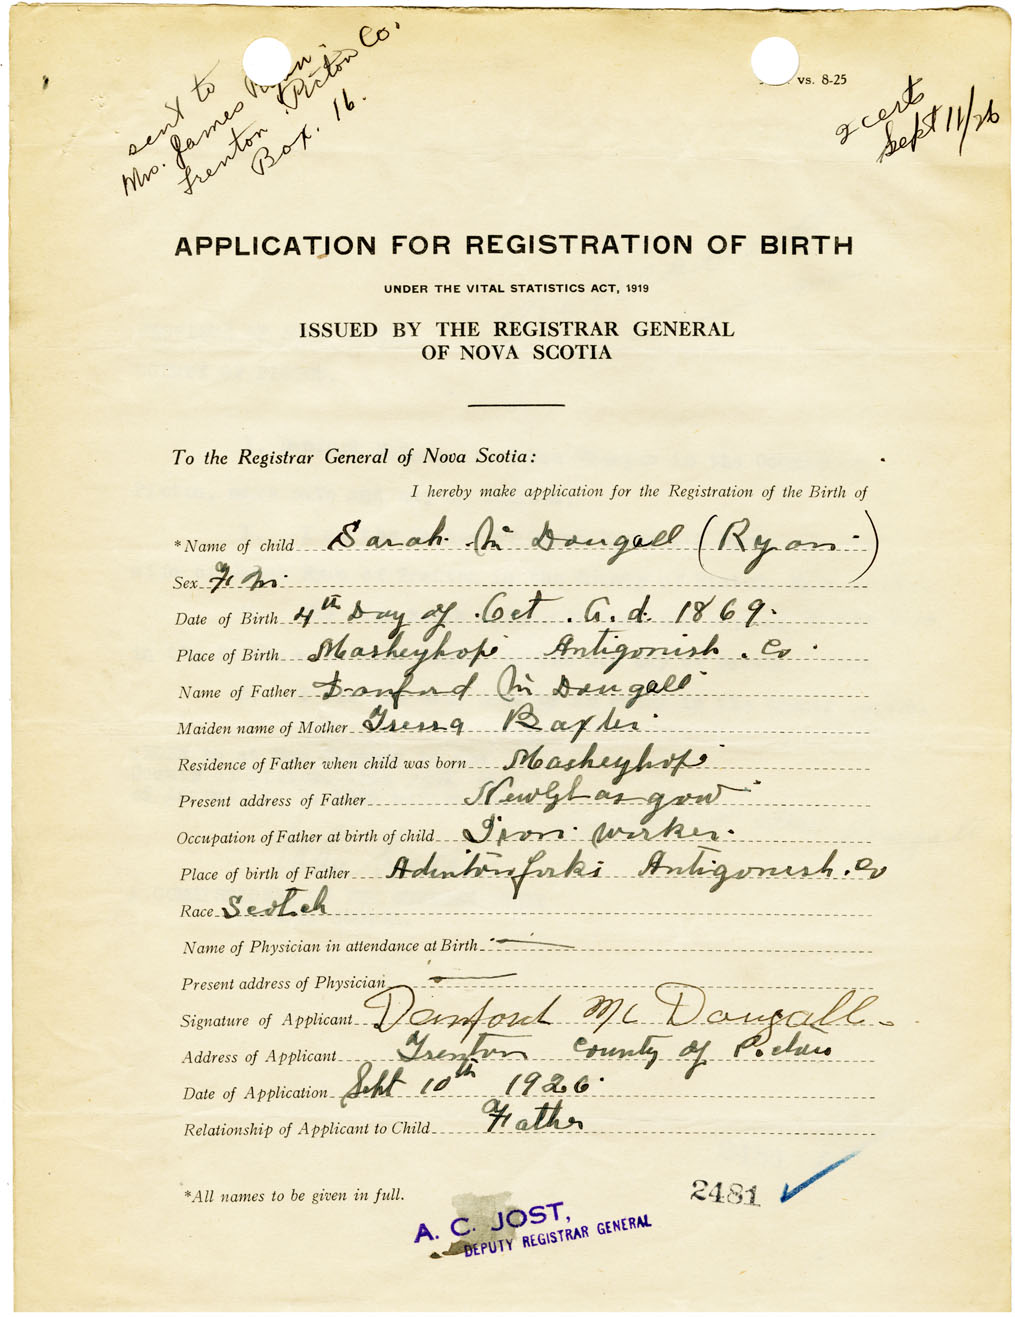 sent to
Mrs. James
Trenton. Pictou Co.
Box. 16.
vs. 8-25
2 certs
Sept 11/26
APPLICATION FOR REGISTRATION OF BIRTH
UNDER THE VITAL STATISTICS ACT, 1919
ISSUED BY THE REGISTRAR GENERAL
OF NOVA SCOTIA
To the Registrar General of Nova Scotia:
I hereby make application for the Registration of the Birth of
*Name of child Sarah Mc Dougall (Ryan)
Sex F
Date of Birth 4th Day of Oct. A.d. 1869.
Place of Birth Masheyhope Antigonish. Co.
Name of Father Danford Mc Dougall
Maiden name of Mother Baxter
Residence of Father when child was born Masheyhope
Present address of Father New Glasgow
Occupation of Father at birth of child Iron worker.
Place of birth of Father Antigonish. Co
Race Scotch
Name of Physician in attendance at Birth —
Present address of Physician —
Signature of Applicant Danford Mc Dougall
Address of Applicant Trenton County of Pictou
Date of Application Sept 10th 1926.
Relationship of Applicant to Child Father
*All names to be given in full.
2481
A. C. JOST,
DEPUTY REGISTRAR GENERAL